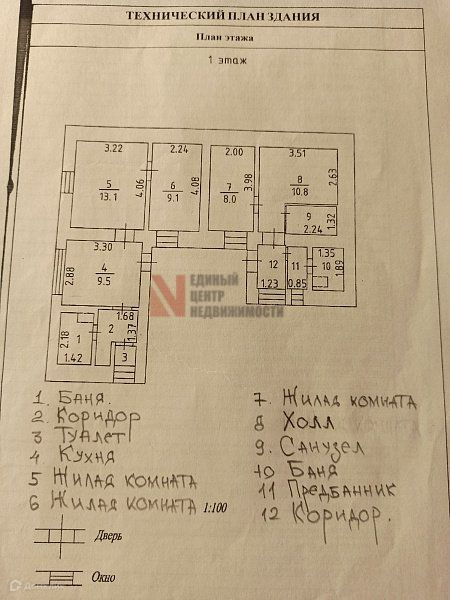 ТЕХНИЧЕСКИЙ ПЛАН ЗДАНИЯ
План этажа
1 этаж
3.22
2.24
2.00
3.51
5
13.1
4.06
6
9.1
4.08
7
8.0
3.98
8
10.8
2.63
9
2.24
1.32
3.30
4
9.5
2.88
12
1.23
11
0.85
1.35
10
1.89
ЕДИНЫЙ
ЦЕНТР
НЕДВИЖИМОСТИ
1.68
2
1.37
2.18
1
1.42
3
1 Баня.
2 Коридор
3 Туалет
4 Кухня
5 Жилая комната
6 Жилая комната 1:100
7. Жилая комната
8 Холл
9. Санузел
10 Баня
11 Предбанник
12 Коридор.
Дверь
Окно